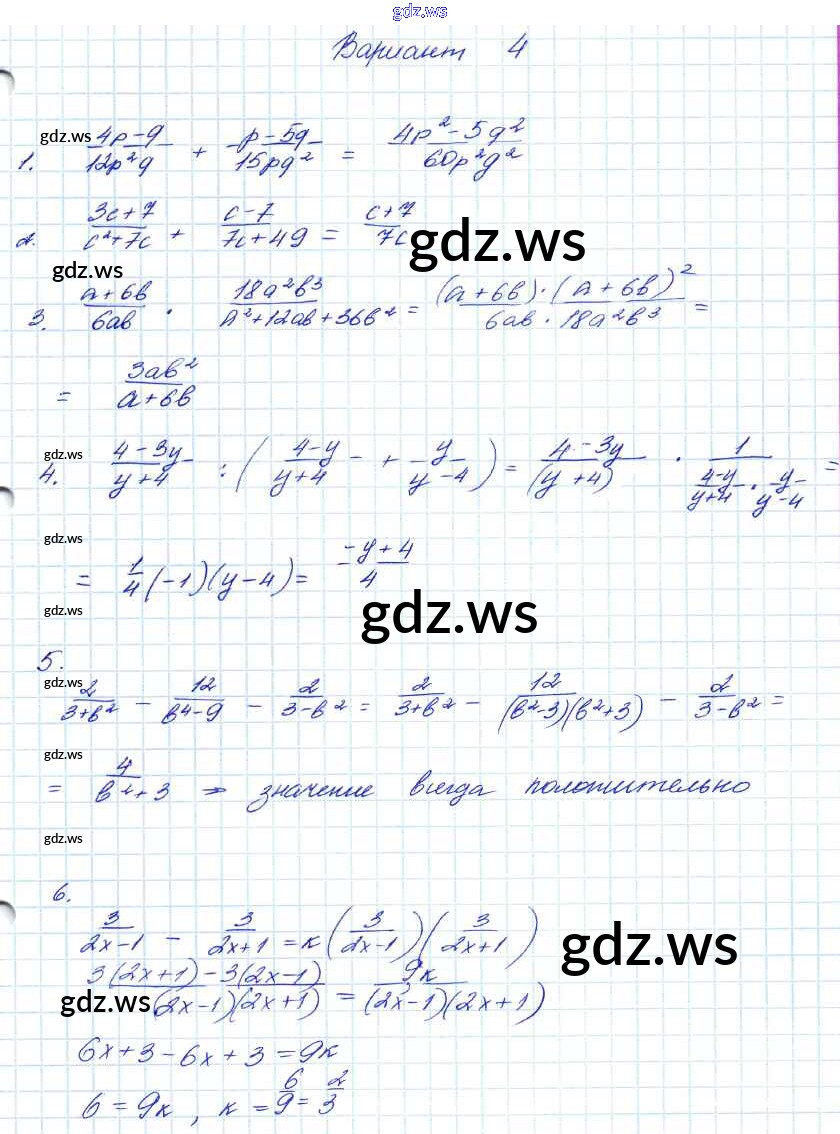 gdz.ws
Вариант 4
gdz.ws
1. (4p-q)/(12p²q) + (p-5q)/(15pq²) = (4p²-5q²)/(60p²q²)
2. (3c+7)/(c²+7c) + (c-7)/(7c+49) = (c+7)/(7c)
gdz.ws
gdz.ws
3. (a+6b)/(6ab) · (18a²b³)/(a²+12ab+36b²) = ((a+6b)·(a+6b)²)/(6ab·18a²b³) =
= (3ab²)/(a+6b)
gdz.ws
4. (4-3y)/(y+4) : ((4-y)/(y+4) + y/(y-4)) = (4-3y)/(y+4) · 1/((4-y)/(y+4) · y/(y-4)) =
gdz.ws
= 1/4 (-1)(y-4) = (-y+4)/4
gdz.ws
gdz.ws
5.
gdz.ws
2/(3+b²) - 12/(b⁴-9) - 2/(3-b²) = 2/(3+b²) - 12/((b²-3)(b²+3)) - 2/(3-b²) =
gdz.ws
= 4/(b²+3) => значение всегда положительно
gdz.ws
6.
3/(2x-1) - 3/(2x+1) = к(3/(2x-1))(3/(2x+1))
gdz.ws
gdz.ws
(3(2x+1)-3(2x-1))/((2x-1)(2x+1)) = 9к/((2x-1)(2x+1))
6x+3-6x+3=9к
6=9к, к=6/9=2/3